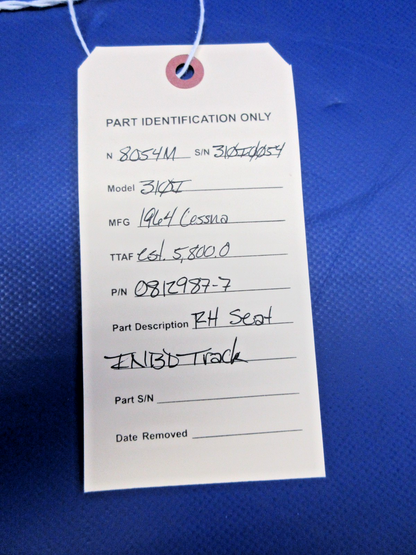 PART IDENTIFICATION ONLY
N 8054M S/N 310I0054
Model 310I
MFG 1964 Cessna
TTAF est. 5,800.0
P/N 0812987-7
Part Description RH Seat
INBD Track
Part S/N
Date Removed